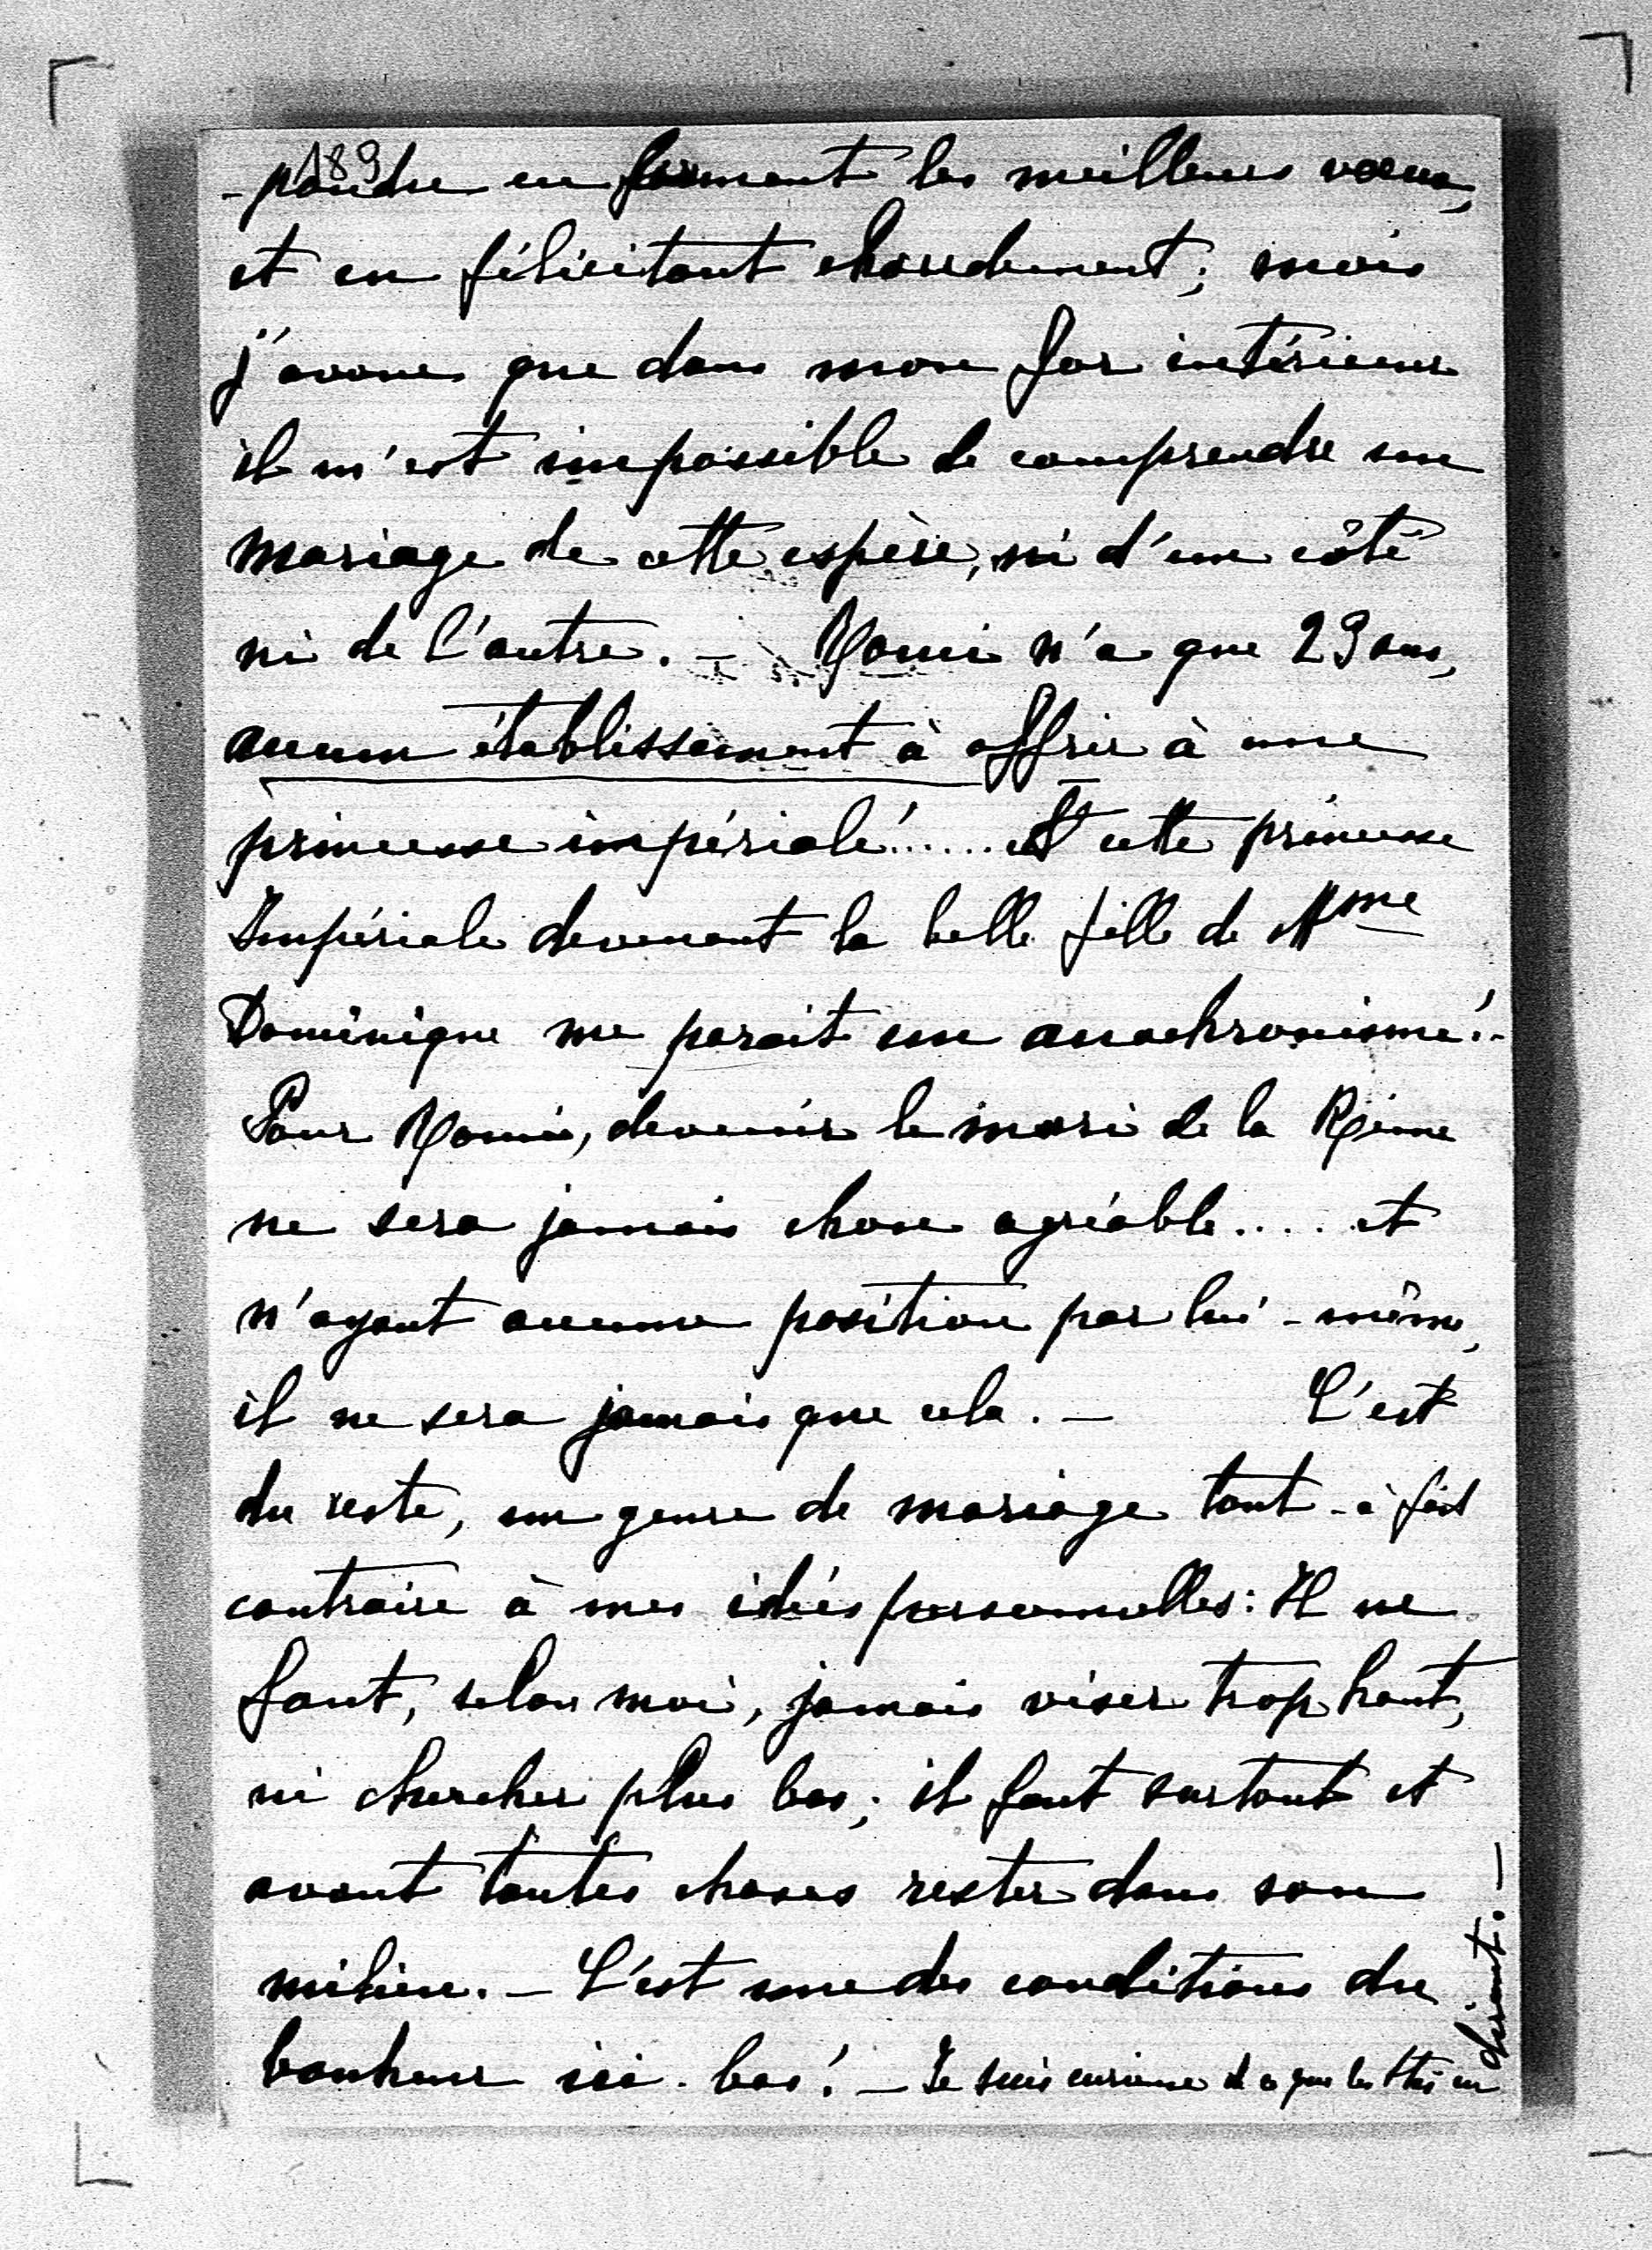 189
-pondre en formant les meilleurs vœux,
et en félicitant chaudement; mais
j'avoue que dans mon for intérieur
il m'est impossible de comprendre un
mariage de cette espèce, ni d'un côté
ni de l'autre. —          n'a que 29 ans,
aucun établissement à offrir à une
princesse impériale!...... et cette princesse
Impériale devenant la belle fille de Mme
Dominique me parait un anachronisme!..
Pour          , devenir le mari de la Reine
ne sera jamais chose agréable.... et
n'ayant aucune position par lui-même,
il ne sera jamais que cela. — C'est
du reste, un genre de mariage tout-à fait
contraire à mes idées personnelles: Il ne
faut, selon moi, jamais viser trop haut,
ni chercher plus bas; il faut surtout et
avant toutes choses rester dans son
milieu. — C'est une des conditions du
bonheur ici-bas! — Je suis curieuse de ce que les          en
diront. —